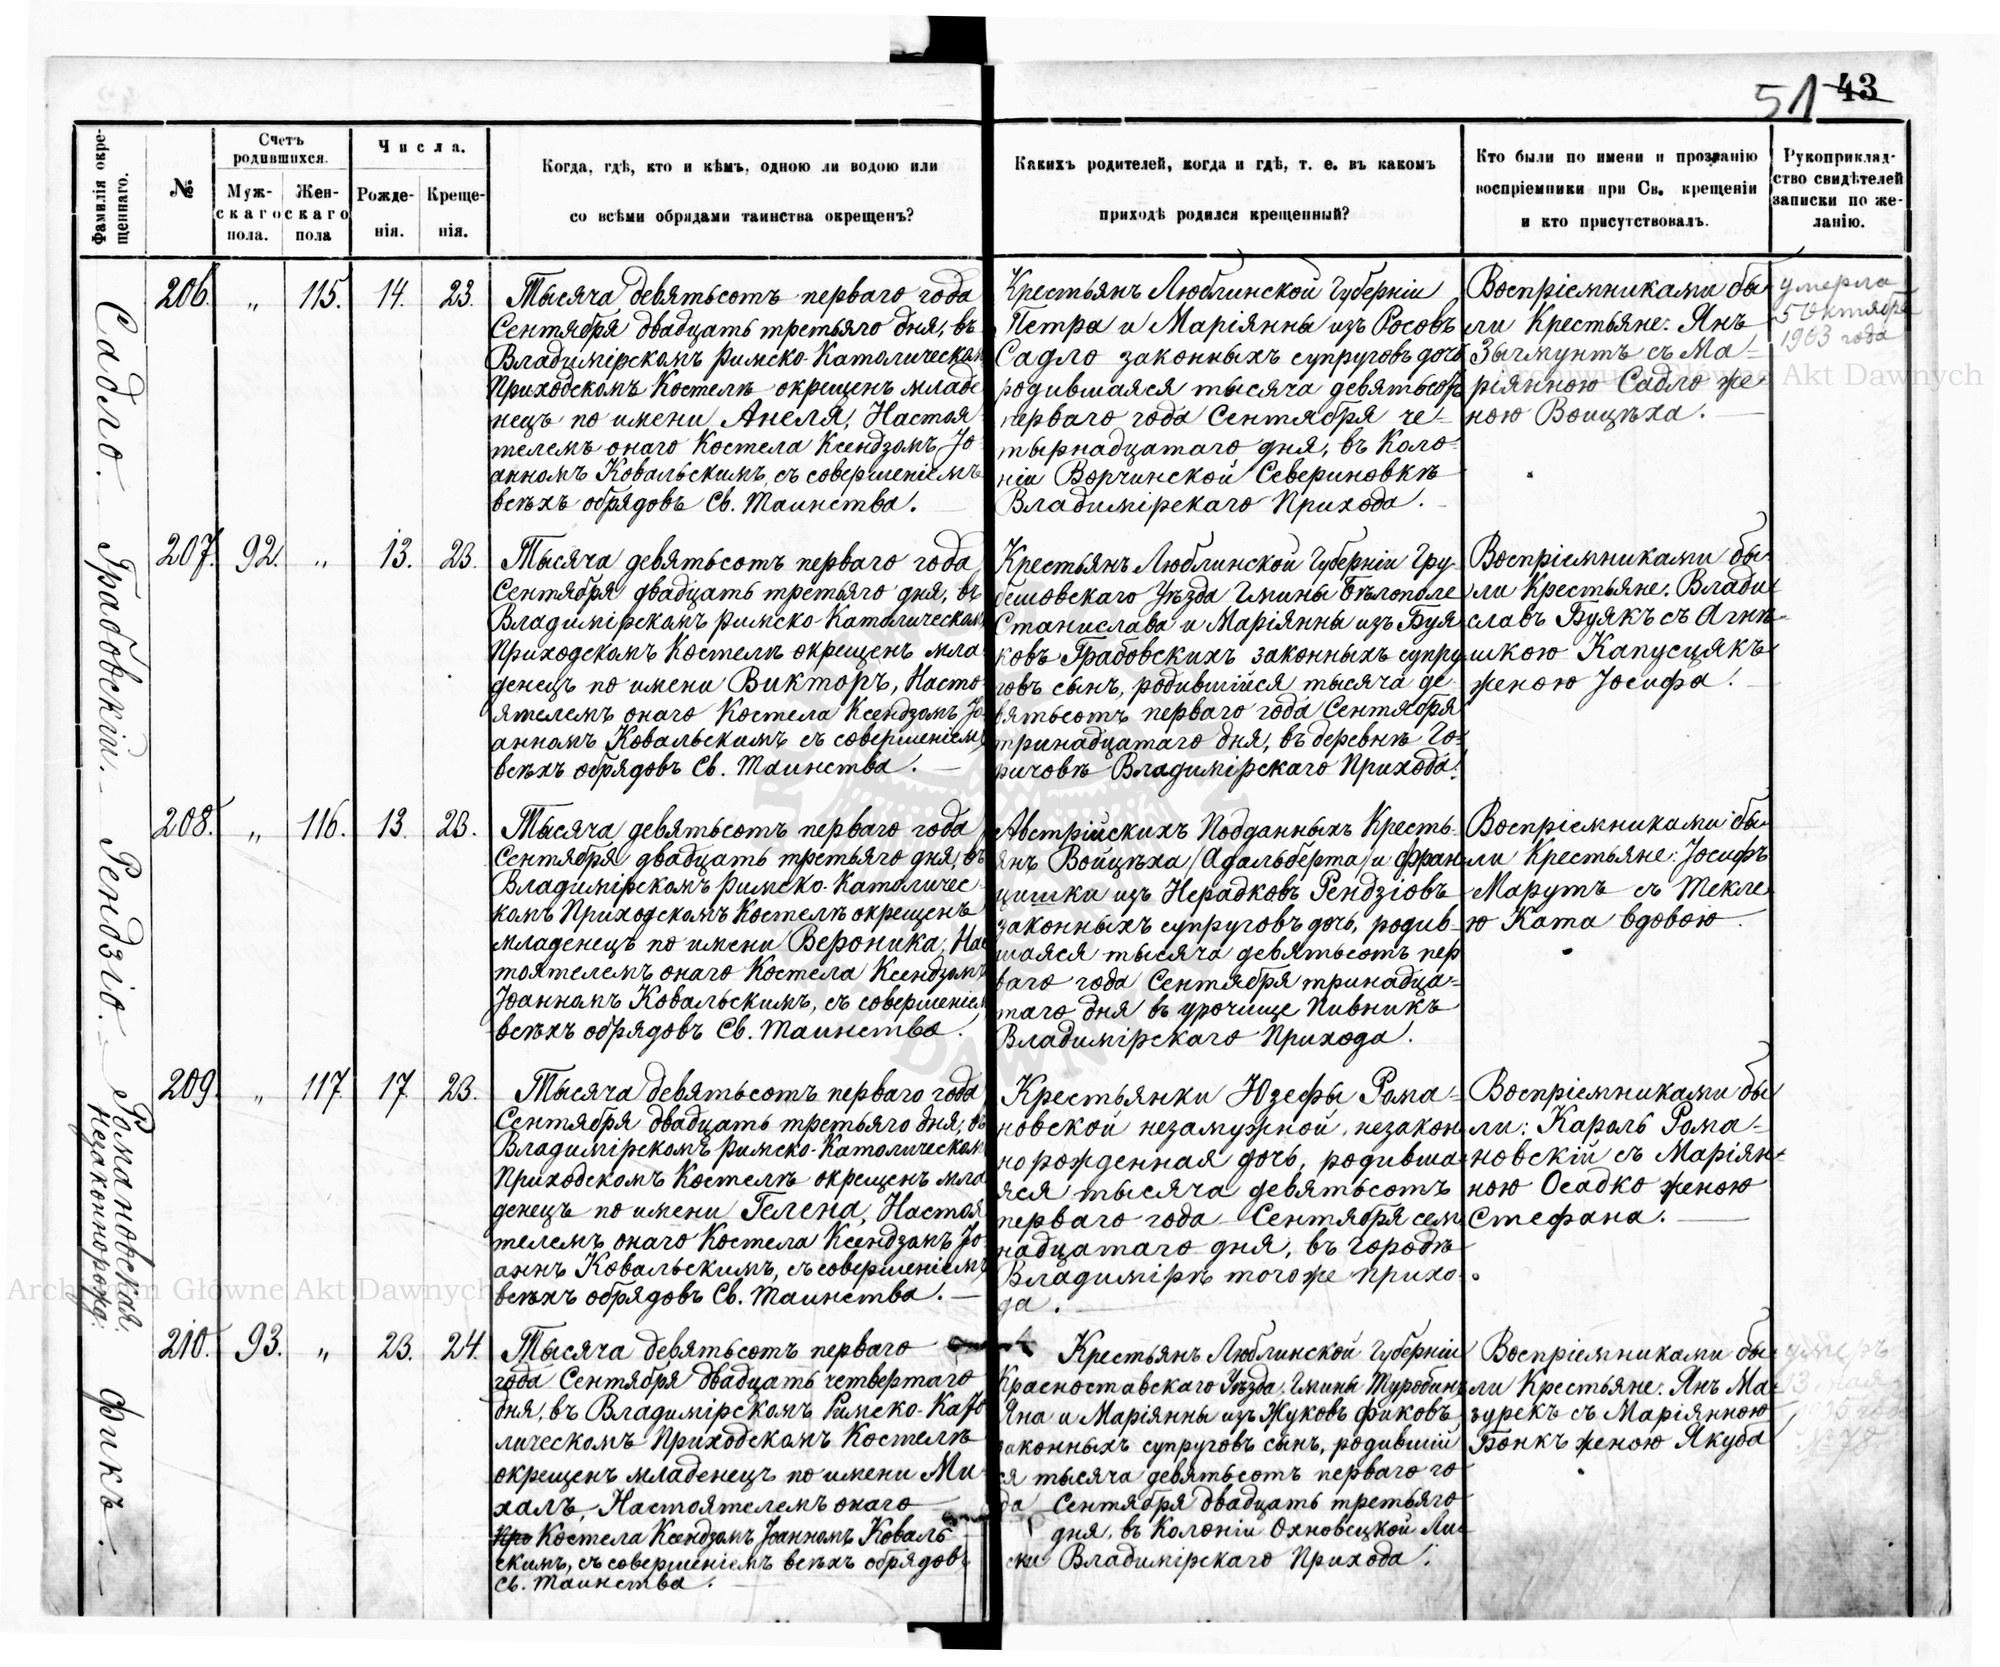 51 43
Фамилія окре-
щеннаго.
№
Счетъ
родившихся.
Муж-
скаго
пола.
Жен-
скаго
пола
Числа.
Рожде-
нія.
Креще-
нія.
Когда, гдѣ, кто и кѣмъ, одною ли водою или
со всѣми обрядами таинства окрещенъ?
Какихъ родителей, когда и гдѣ, т. е. въ какомъ
приходѣ родился крещенный?
Кто были по имени и прозванію
воспріемники при Св. крещеніи
и кто присутствовалъ.
Рукоприклад-
ство свидѣтелей
записки по же-
ланію.
Садло.
206. „ 115. 14. 23.
Тысяча девятьсотъ перваго года
Сентября двадцать третьяго дня, въ
Владимірскомъ Римско-Католическомъ
Приходскомъ Костелѣ окрещенъ младе
нецъ по имени Анеля, Настоя
телемъ онаго Костела Ксендзомъ Іо
анномъ Ковальскимъ, съ совершеніемъ
всѣхъ обрядовъ Св. Таинства.
Крестьянъ Люблинской Губерніи
Петра и Маріянны изъ Росовъ
Садло законныхъ супруговъ дочь
родившаяся тысяча девятьсотъ
перваго года Сентября че-
тырнадцатаго дня, въ Коло
ніи Ворчинской Севериновкѣ
Владимірскаго Прихода.
Воспріемниками бы
ли Крестьяне: Янъ
Зыгмунтъ съ Ма-
ріянною Садло же
ною Воицѣха.
умерла
5 Октября
1903 года
Грабовскій.
207. 92. „ 13. 23.
Тысяча девятьсотъ перваго года
Сентября двадцать третьяго дня, въ
Владимірскомъ Римско-Католическомъ
Приходскомъ Костелѣ окрещенъ мла
денецъ по имени Викторъ, Насто
ятелемъ онаго Костела Ксендзомъ Іо
анномъ Ковальскимъ съ совершеніемъ
всѣхъ обрядовъ Св. Таинства.
Крестьянъ Люблинской Губерніи Гру-
бешовскаго Уѣзда Гмины Бѣлополе
Станислава и Маріянны изъ Буя
ковъ Грабовскихъ законныхъ супру
говъ сынъ, родившійся тысяча де-
вятьсотъ перваго года Сентября
тринадцатаго дня, въ деревнѣ Го-
ричовѣ Владимірскаго Прихода.
Воспріемниками бы-
ли Крестьяне: Влади
славъ Буякъ съ Агнѣ-
шкою Капусцякъ
женою Іосифа.
Рендзіо.
208. „ 116. 13. 23.
Тысяча девятьсотъ перваго года
Сентября двадцать третьяго дня, въ
Владимірскомъ Римско-Католичес-
комъ Приходскомъ Костелѣ окрещенъ
младенецъ по имени Вероника, Нас
тоятелемъ онаго Костела Ксендзомъ
Іоанномъ Ковальскимъ, съ совершеніемъ
всѣхъ обрядовъ Св. Таинства.
Австрійскихъ Подданныхъ Кресть-
янъ Войцѣха /Адальберта/ и Фран
цишки изъ Нерадковъ Рендзіовъ
законныхъ супруговъ дочь, родив-
шаяся тысяча девятьсотъ пер
ваго года Сентября тринадца-
таго дня въ урочище Пивникъ
Владимірскаго Прихода.
Воспріемниками бы
ли Крестьяне: Іосифъ
Марутъ съ Текле
ю Ката вдовою.
Романовская.
Незаконнорожд.
209. „ 117. 17. 23.
Тысяча девятьсотъ перваго года
Сентября двадцать третьяго дня, въ
Владимірскомъ Римско-Католическомъ
Приходскомъ Костелѣ окрещенъ мла
денецъ по имени Гелена, Настоя
телемъ онаго Костела Ксендзомъ Іо
аннъ Ковальскимъ, съ совершеніемъ
всѣхъ обрядовъ Св. Таинства.
Крестьянки Юзефы Рома-
новской незамужной, незакон
норожденная дочь, родивша
яся тысяча девятьсотъ
перваго года Сентября сем
надцатаго дня, въ городѣ
Владимірѣ того же прихо-
да.
Воспріемниками бы
ли: Кароль Рома-
новскій съ Маріян-
ною Осадко женою
Стефана.
Фикъ.
210. 93. „ 23. 24.
Тысяча девятьсотъ перваго
года Сентября двадцать четвертаго
дня, въ Владимірскомъ Римско-Като
лическомъ Приходскомъ Костелѣ
окрещенъ младенецъ по имени Ми
халъ, Настоятелемъ онаго
При Костела Ксендзомъ Іоанномъ Коваль
скимъ, съ совершеніемъ всѣхъ обрядовъ
Св. Таинства.
Крестьянъ Люблинской Губерніи
Красноставскаго Уѣзда, Гмины Туробинъ
Яна и Маріянны изъ Жуковъ Фиковъ
законныхъ супруговъ сынъ, родившій
ся тысяча девятьсотъ перваго го
да Сентября двадцать третьяго
дня, въ Колоніи Охновецкой Ли
ски Владимірскаго Прихода.
Воспріемниками бы
ли Крестьяне: Янъ Ма-
зурекъ съ Маріянною
Бонкъ женою Якуба
умеръ
13 мая
№ 78
Archiwum Główne Akt Dawnych
Archiwum Główne Akt Dawnych